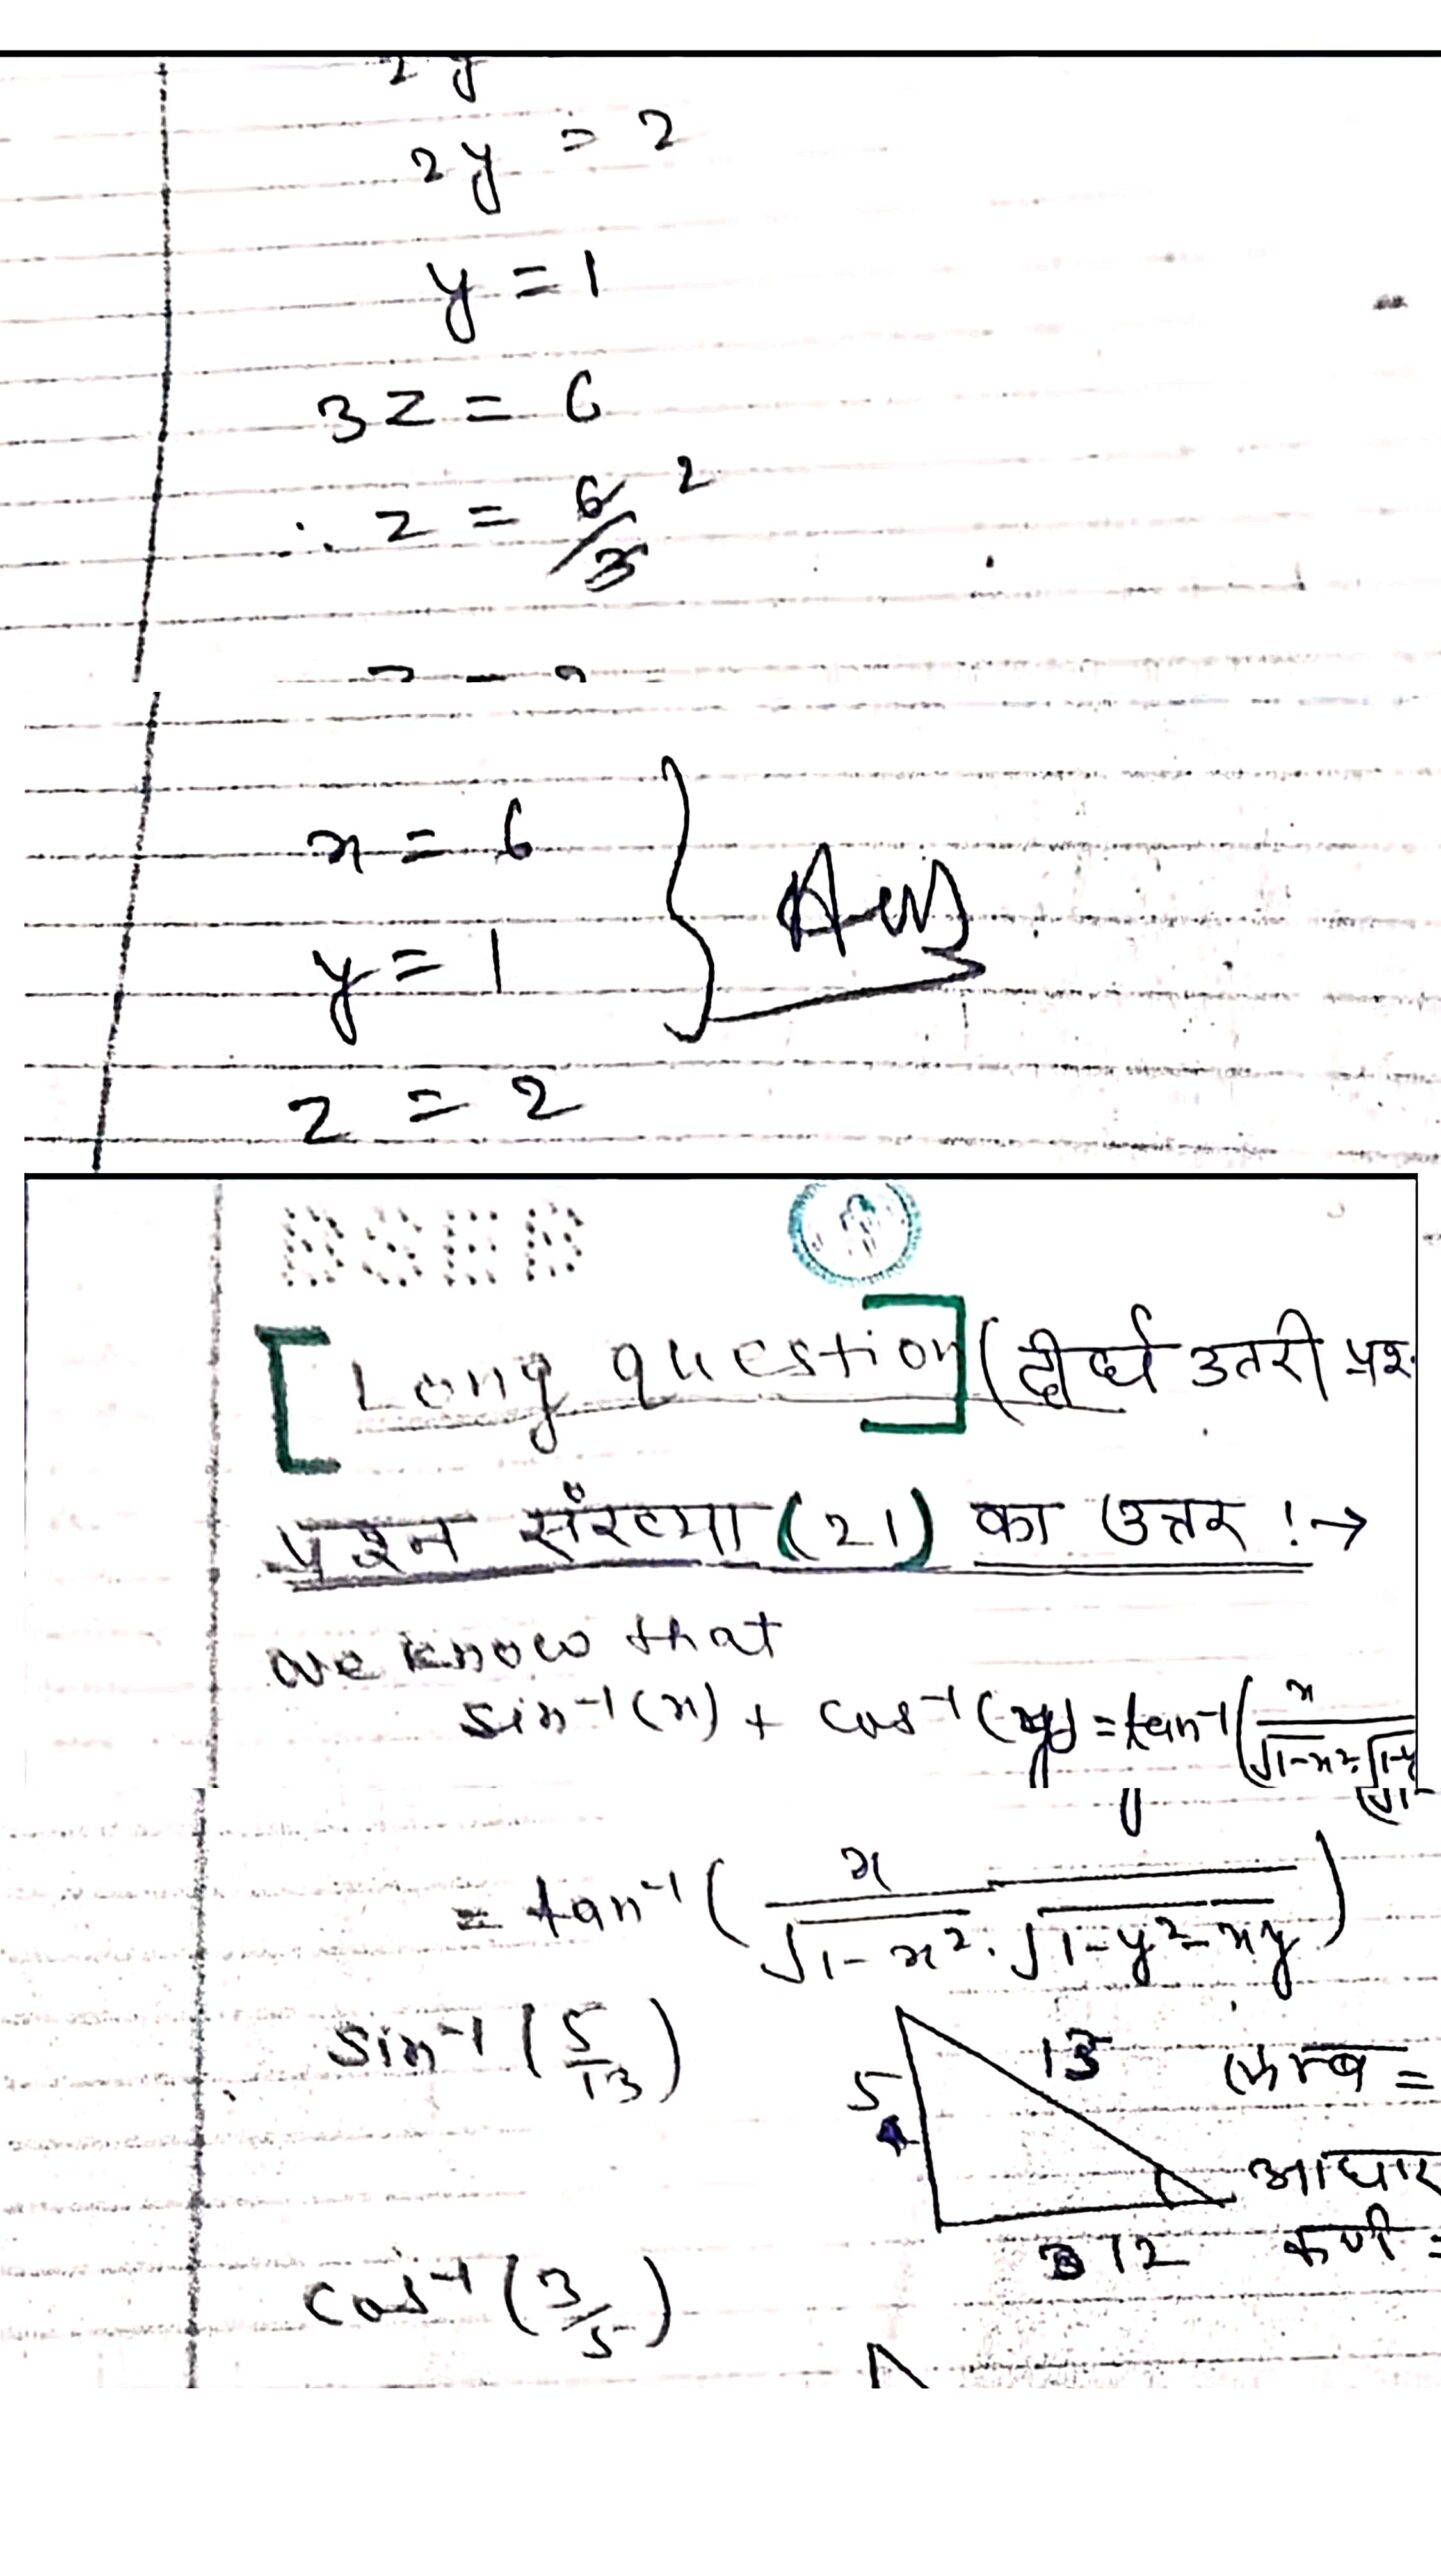 2y = 2
y = 1
3z = 6
∴ z = 6/3 2
x = 6
y = 1
z = 2
Ans
[Long question] (दीर्घ उतरी प्रश
प्रश्न संख्या (21) का उत्तर !→
we know that
sin⁻¹(x) + cos⁻¹(y) = tan⁻¹(x/√1-x²·√1-y
= tan⁻¹(x/√1-x²·√1-y²-xy)
sin⁻¹(5/13)
5
13
12
लम्ब =
आधार
कर्ण =
cos⁻¹(3/5)